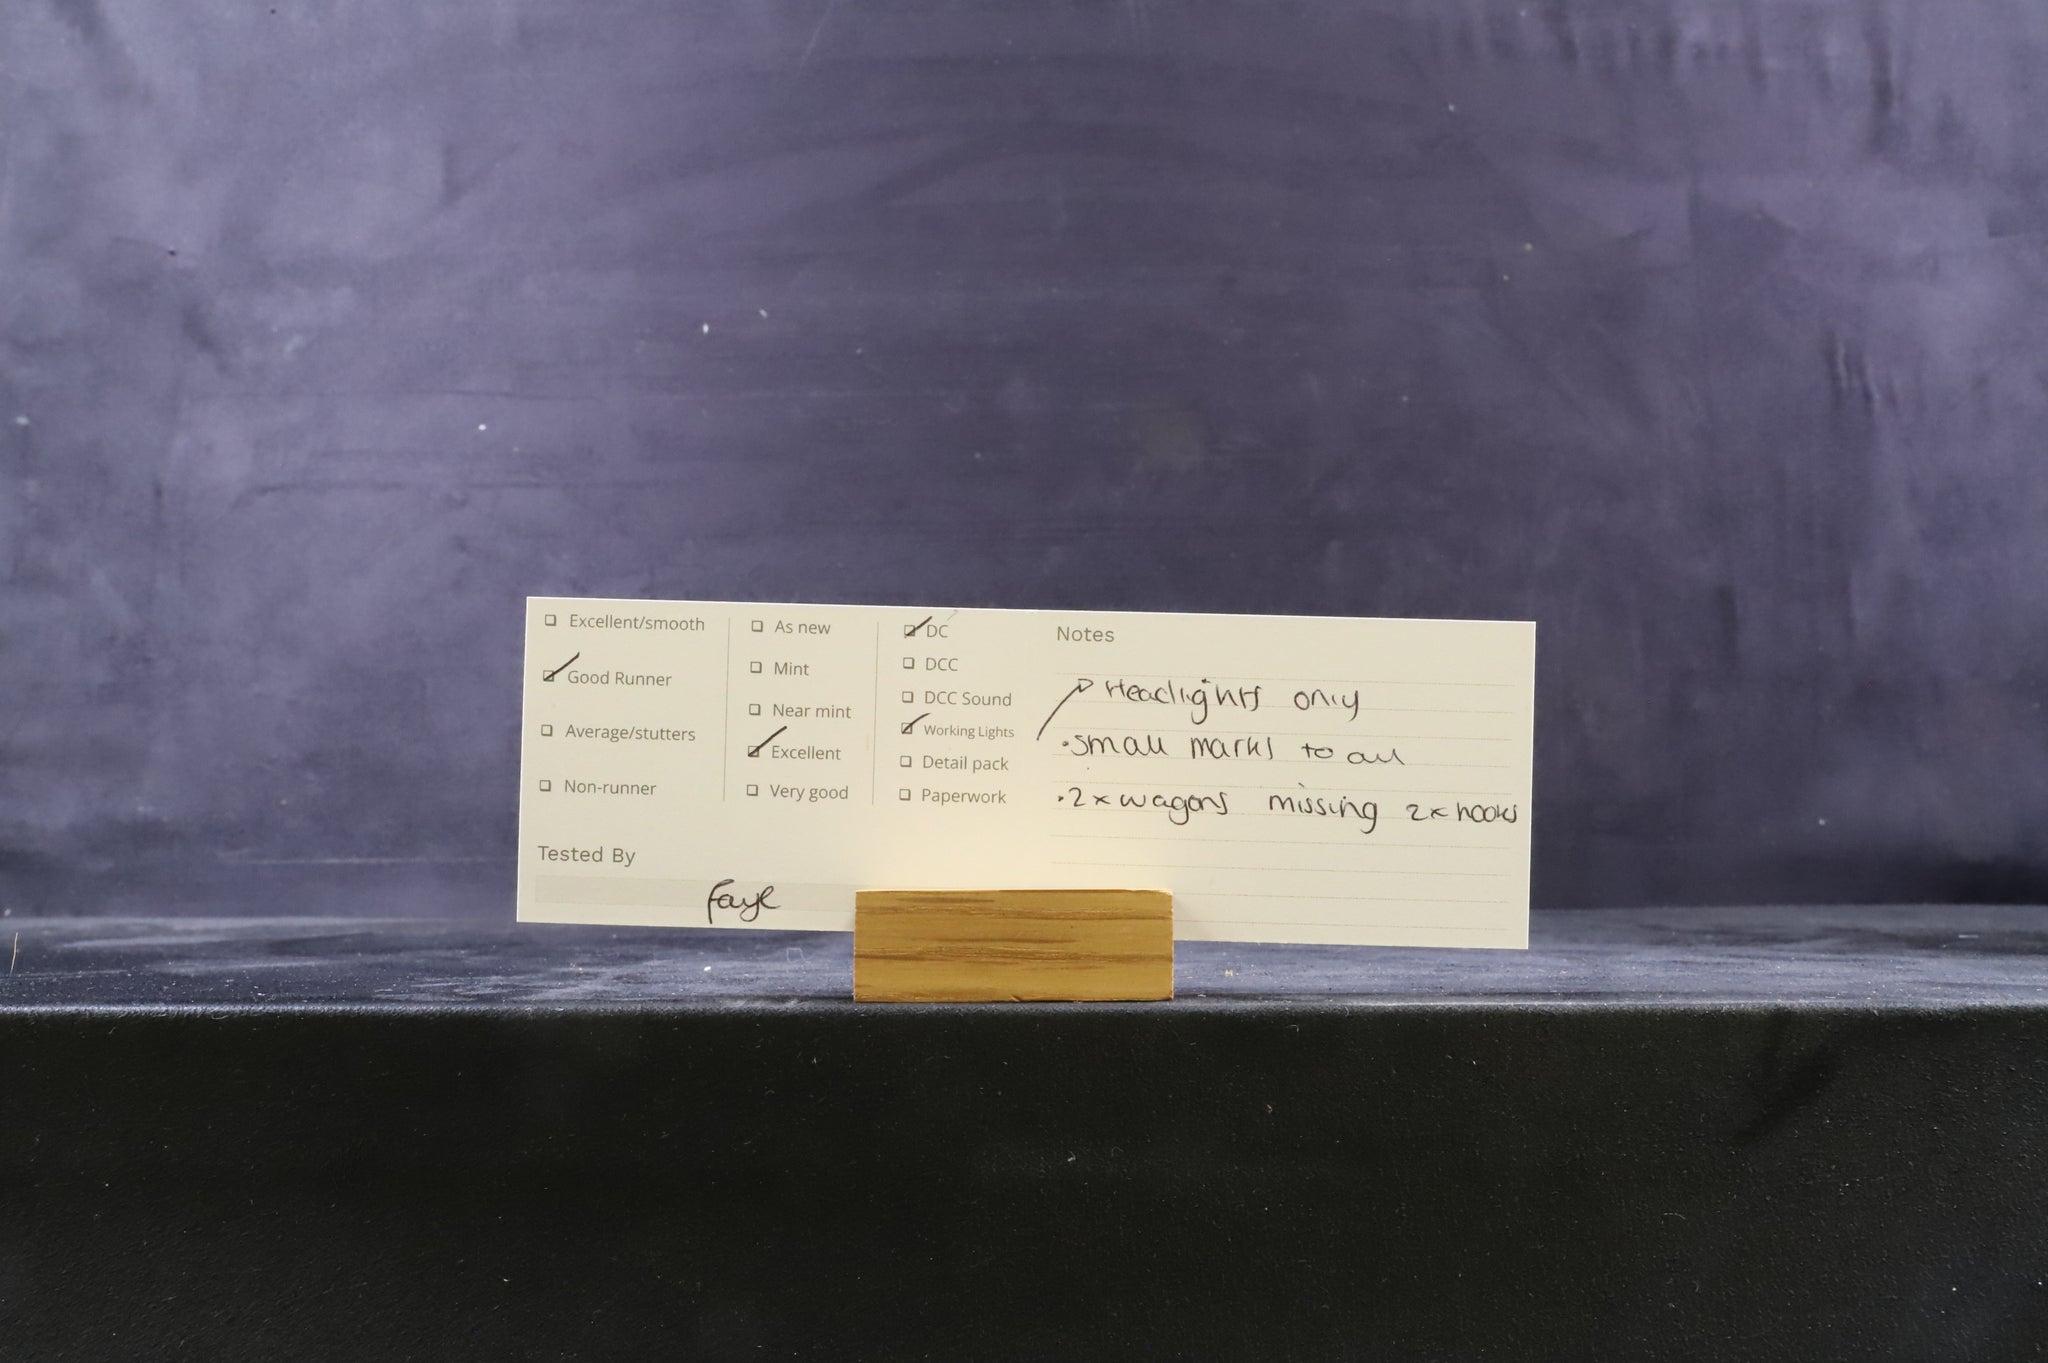 Excellent/smooth
Good Runner
Average/stutters
Non-runner
Tested By
Faye
As new
Mint
Near mint
Excellent
Very good
DC
DCC
DCC Sound
Working Lights
Detail pack
Paperwork
Notes
Headlights only
• small marks to all
• 2x wagons missing 2x hooks